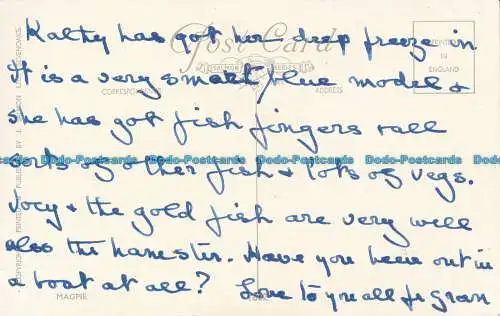 Kathy has got her deep freeze in
Post Card
It is a very smart blue model &
SALMON SERIES
CORRESPONDENCE
ADDRESS
PRINTED
IN
ENGLAND
she has got fish fingers & all
sorts of other fish & lots of vegs.
Dodo-Postcards Dodo-Postcards Dodo-Postcards Dodo-Postcards Dodo-Postcards
Joey & the gold fish are very well
also the hamster. Have you been out in
a boat at all? Love to you all fr gran
MAGPIE
COPYRIGHT PRINTED & PUBLISHED BY J. SALMON SEVENOAKS.